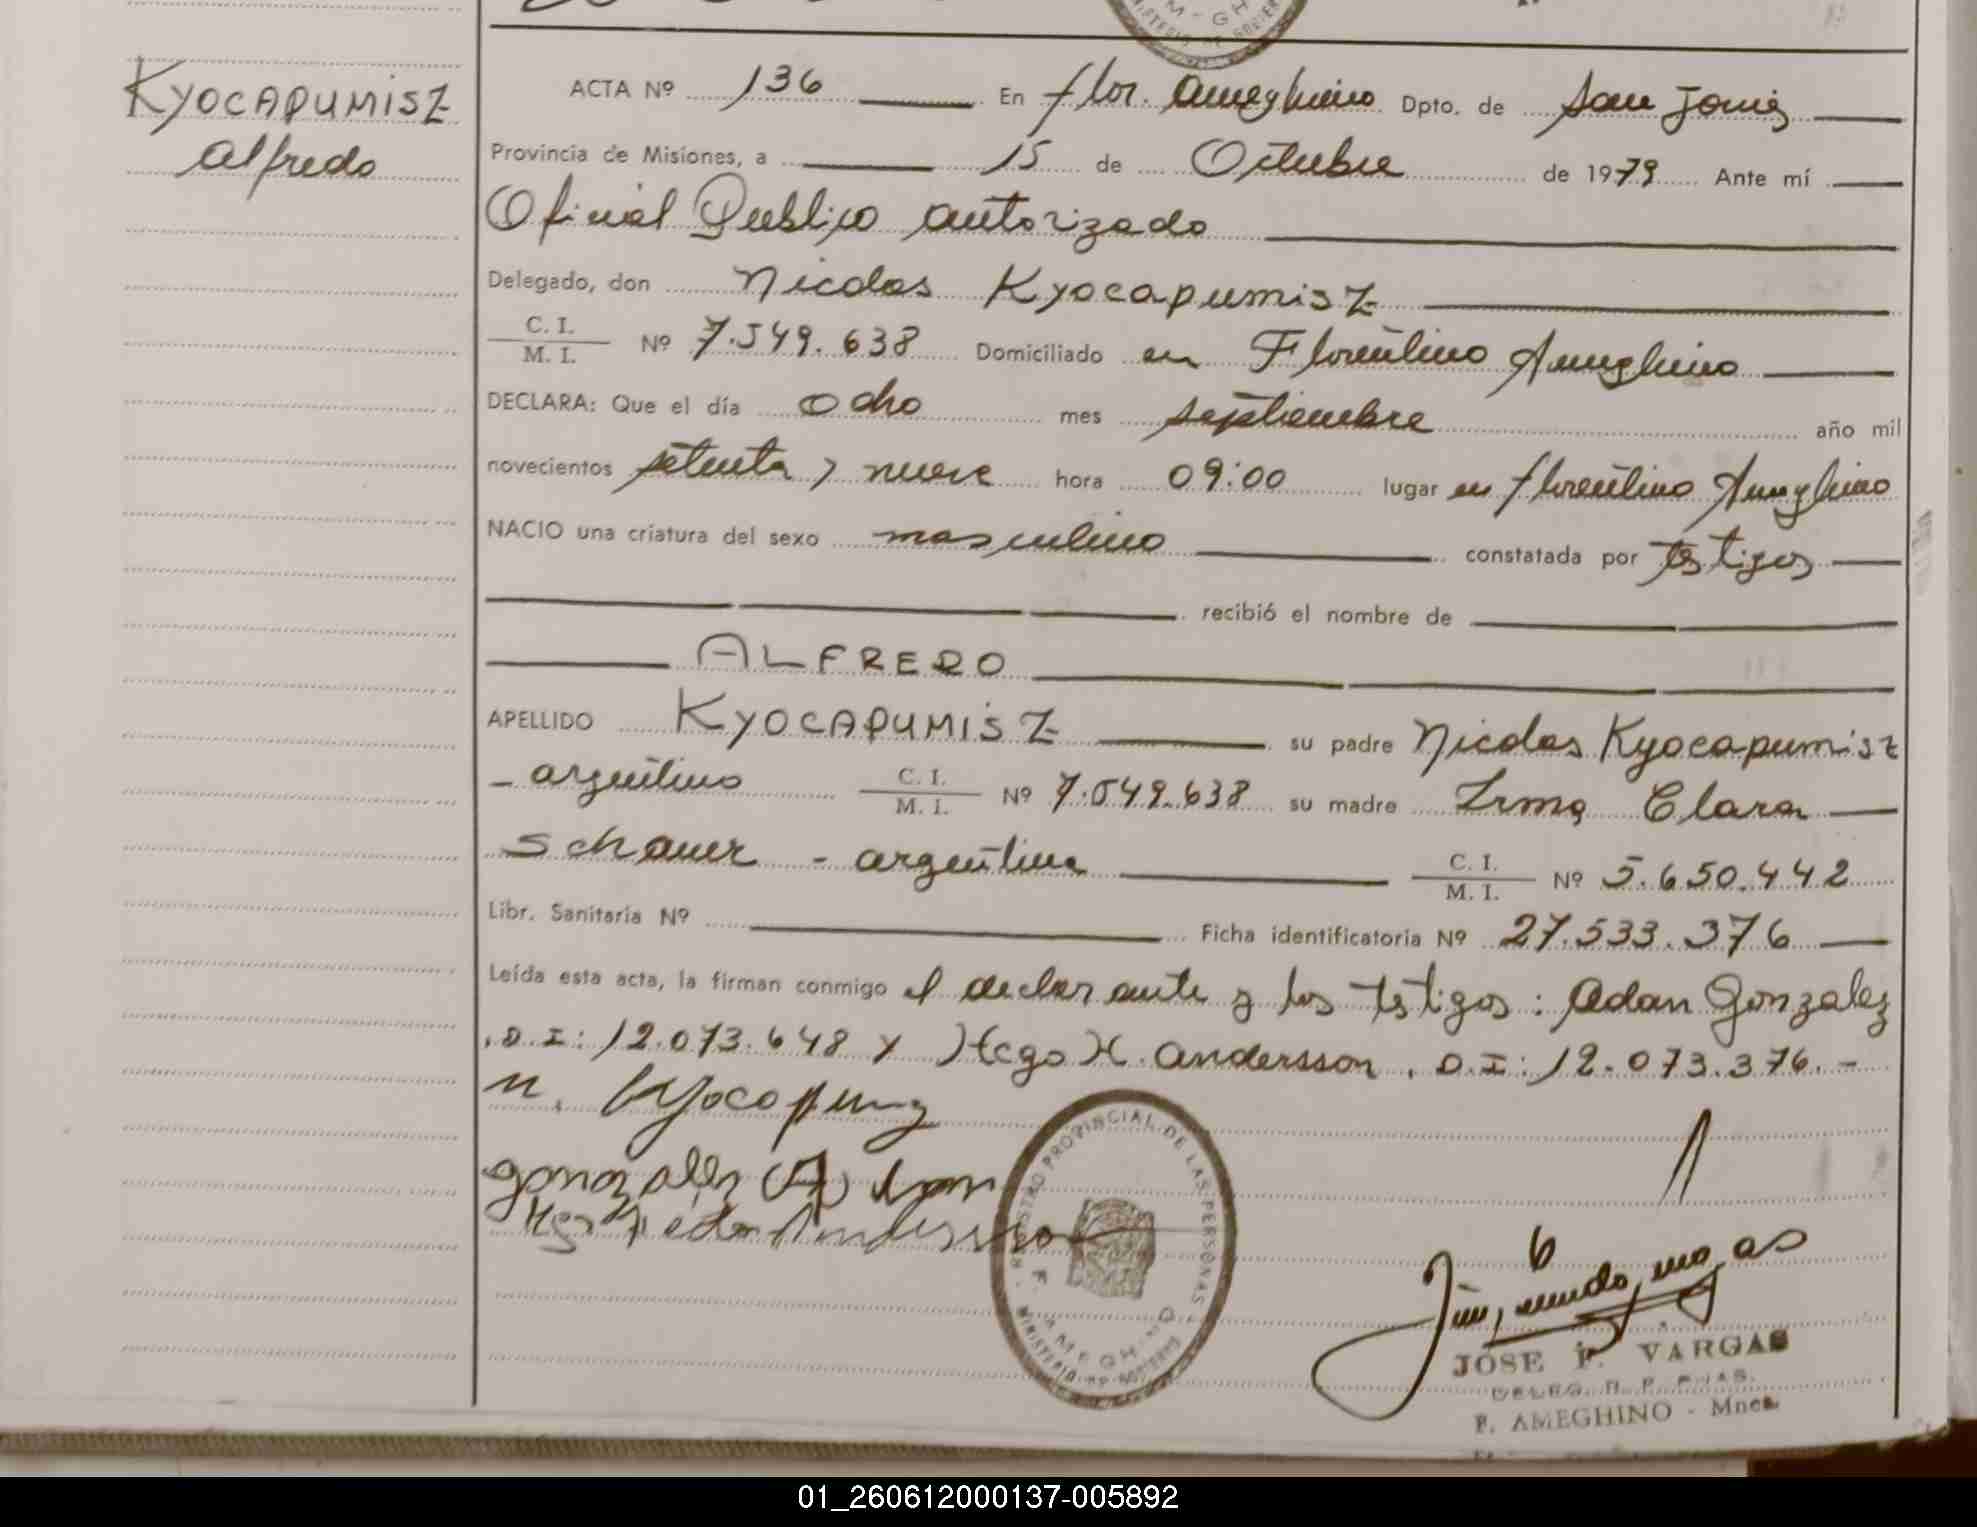 KYOCAPUMISZ
Alfredo
ACTA Nº 136 En flor. Ameghino Dpto. de San Javier
Provincia de Misiones, a 15 de Octubre de 1979 Ante mí
Oficial Publico autorizado
Delegado, don Nicolas Kyocapumisz
C. I.
M. I. Nº 7.549.638 Domiciliado en Florentino Ameghino
DECLARA: Que el día Ocho mes septiembre año mil
novecientos setenta y nueve hora 09:00 lugar en florentino Ameghino
NACIO una criatura del sexo masculino constatada por testigos
recibió el nombre de
ALFREDO
APELLIDO KYOCAPUMISZ su padre Nicolas Kyocapumisz
- argentino C. I.
M. I. Nº 7.549.638 su madre Irma Clara
Schauer - argentina C. I.
M. I. Nº 5.650.442
Libr. Sanitaria Nº Ficha identificatoria Nº 27.533.376
Leída esta acta, la firman conmigo el declarante y los testigos: Adan Gonzalez
D.I: 12.073.648 y Hugo H. Andersson, D.I: 12.073.376.-
N. Kyocapumz
gonzalez Adan
REGISTRO PROVINCIAL DE LAS PERSONAS
F. AMEGHINO
MINISTERIO DE GOBIERNO
JOSE F. VARGAS
F. AMEGHINO - Mnes.
01_260612000137-005892